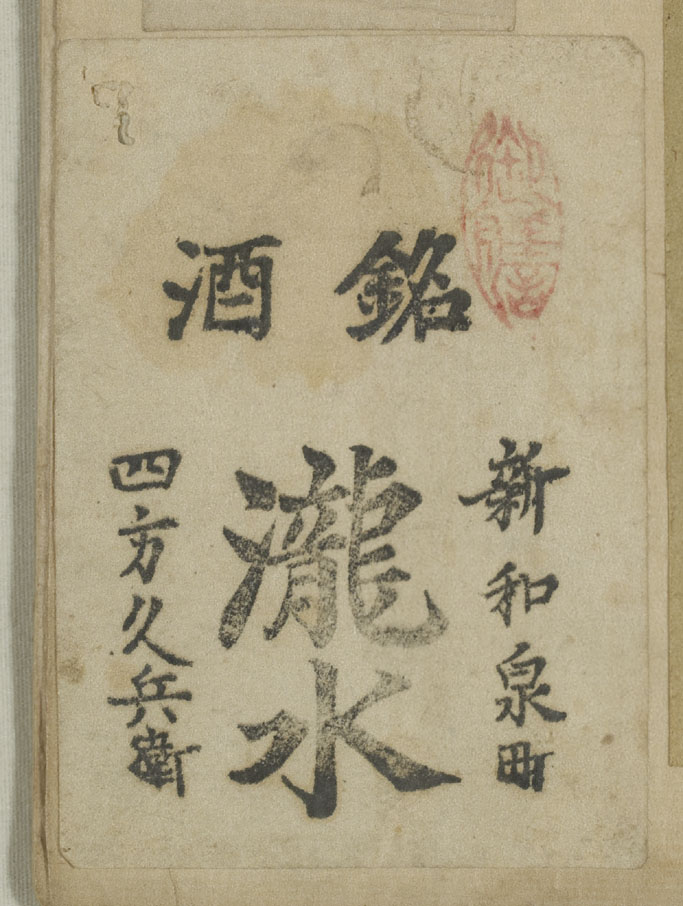 銘酒
新和泉町
瀧水
四方久兵衛